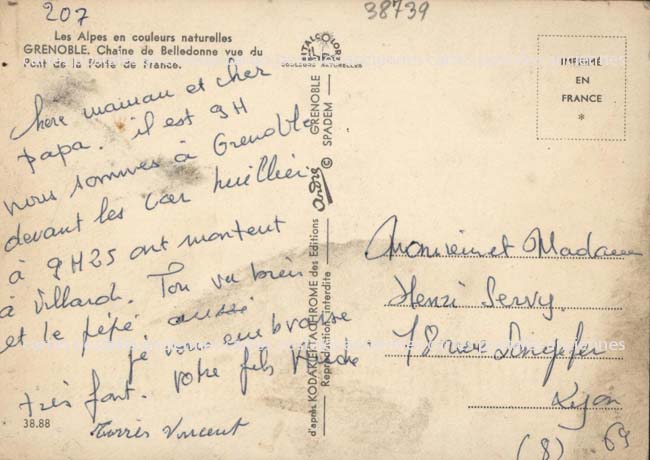 207
38739
Les Alpes en couleurs naturelles
GRENOBLE. Chaîne de Belledonne vue du
Pont de la Porte de France.
ITALCOLOR
COULEURS NATURELLES
IMPRIMÉ
EN
FRANCE
*
Chère maman et cher
papa. il est 9H
nous sommes à Grenoble
devant les car huillier
à 9H25 ont montent
à Villard. Ton va bien
et le pépé aussi
je vous embrasse
très fort. votre fils
Torrès Vincent
38.88
d'après KODAK EKTACHROME des Editions André © GRENOBLE
Reproduction interdite SPADEM
Monsieur et Madame
Henri Servy
78 rue
Lyon
(8) 69